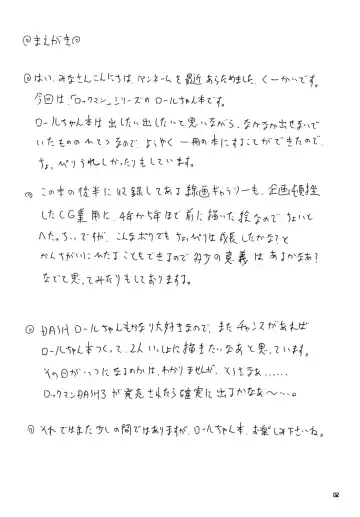 ◎まえがき◎
◎はい、みなさんこんにちは、ペンネームを最近あらためました、くーかいです。
今回は、「ロックマン」シリーズのロールちゃん本です。
ロールちゃん本は出したい出したいと思いながら、なかなか出せないで
いたもののれつなので、ようやく一冊の本にすることができたので、
ちょっぴりうれしかったりもしています。
◎この本の後半に収録してある線画ギャラリーも、企画頓挫
したCG集用に、4年から5年ほど前に描いた絵なのでちょいと
へた。ちぃですが、こんなボクでもちょっぴりは成長したかな?と
かんちがいにひたることもできるので多少の意義はあるかなあ?
なでと思ってみたりもしております。
◎DASHロールちゃんもかなり大好きなので、またチャンスがあれば
ロールちゃん本つくって、2人いっしょに描きたいなあと思っています。
その日がいつになるのかは、わかりませんが、とうるなぁ......
ロックマンDASH3が発売されたら確実に出るかなぁ〜...。
◎それではまた少しの間ではありますが、ロールちゃん本、お楽しみ下さいね。
02